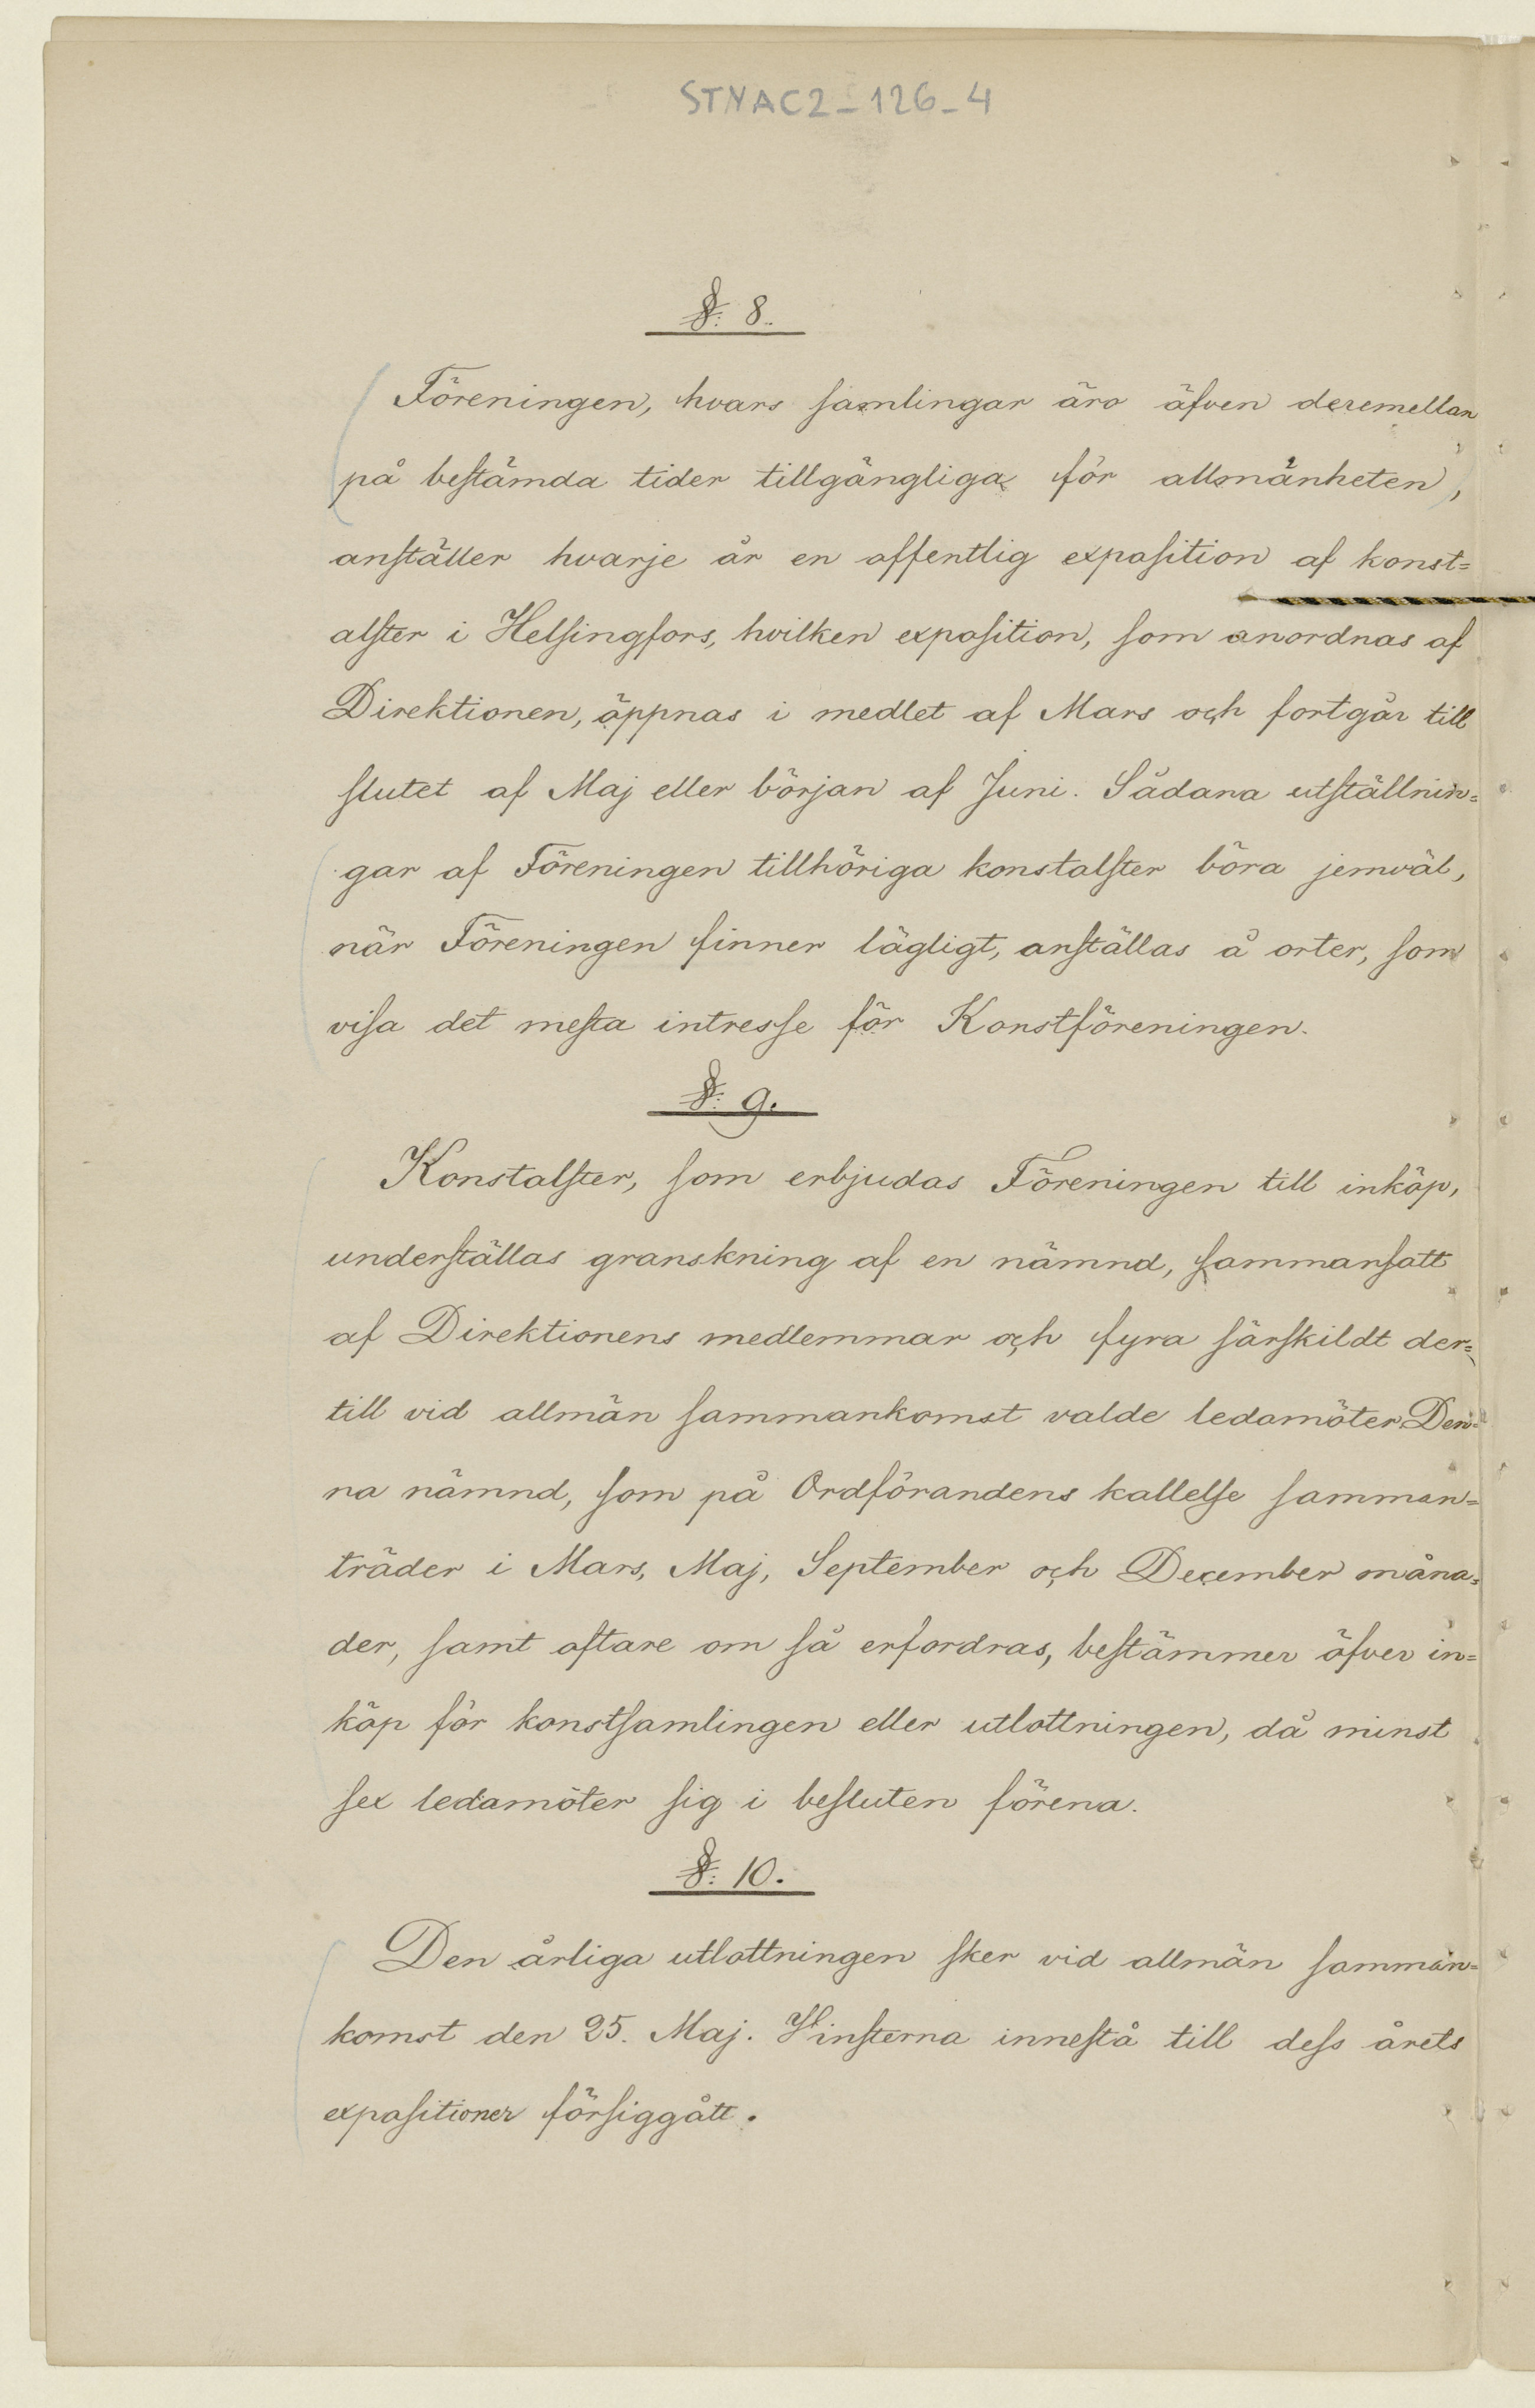 STNAC2_126_4
§: 8.
Föreningen, hvars samlingar äro äfven deremellan
på bestämda tider tillgängliga för allmänheten,
anställer hvarje år en offentlig exposition af konst=
alster i Helsingfors, hvilken exposition, som anordnas af
Direktionen, öppnas i medlet af Mars och fortgår till
slutet af Maj eller början af Juni. Sådana utställnin=
gar af Föreningen tillhöriga konstalster böra jemväl,
när Föreningen finner lägligt, anställas å orter, som
visa det mesta intresse för Konstföreningen.
§: 9.
Konstalster, som erbjudas Föreningen till inköp,
underställas granskning af en nämnd, sammansatt
af Direktionens medlemmar och fyra särskildt der=
till vid allmän sammankomst valde ledamöter. Den=
na nämnd, som på Ordförandens kallelse samman=
träder i Mars, Maj, September och December måna=
der, samt oftare om så erfordras, bestämmer öfver in=
köp för konstsamlingen eller utlottningen, då minst
sex ledamöter sig i besluten förena.
§: 10.
Den årliga utlottningen sker vid allmän samman=
komst den 25. Maj. Vinsterna innestå till dess årets
expositioner försiggått.